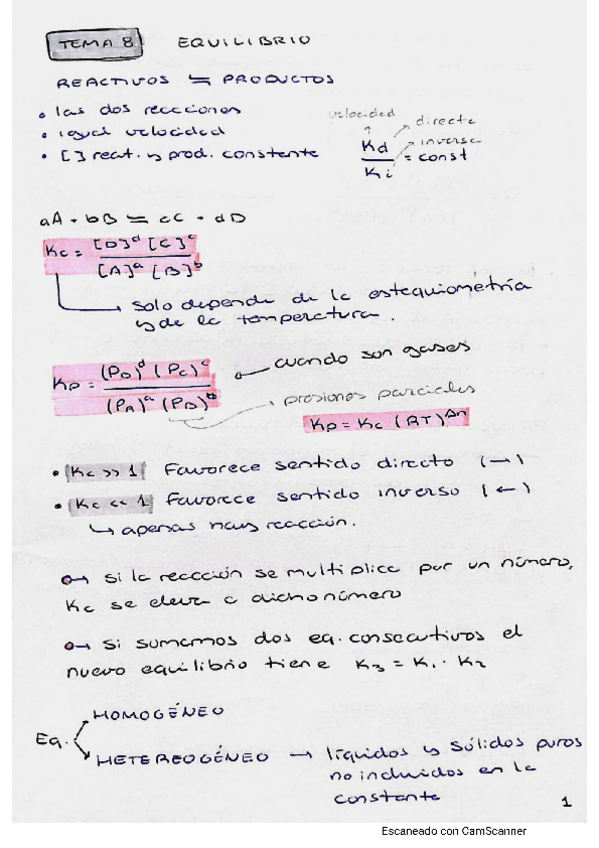 TEMA 8 EQUILIBRIO
REACTIVOS ⇌ PRODUCTOS
• las dos reacciones
• igual velocidad
• [ ] react. y prod. constante
velocidad
directa
inversa
Kd / Ki = const
aA + bB ⇌ cC + dD
Kc = [D]^d [C]^c / [A]^a [B]^b
solo depende de la estequiometría
y de la temperatura.
Kp = (PD)^d (PC)^c / (PA)^a (PB)^b
cuando son gases
presiones parciales
Kp = Kc (RT)^Δn
• Kc >> 1 Favorece sentido directo (→)
• Kc << 1 Favorece sentido inverso (←)
↳ apenas hay reacción.
o→ si la reacción se multiplica por un número,
Kc se eleva a dicho número
o→ si sumamos dos eq. consecutivos el
nuevo equilibrio tiene K3 = K1 · K2
Eq.
HOMOGÉNEO
HETEREOGÉNEO → líquidos y sólidos puros
no incluidos en la
constante
1
Escaneado con CamScanner